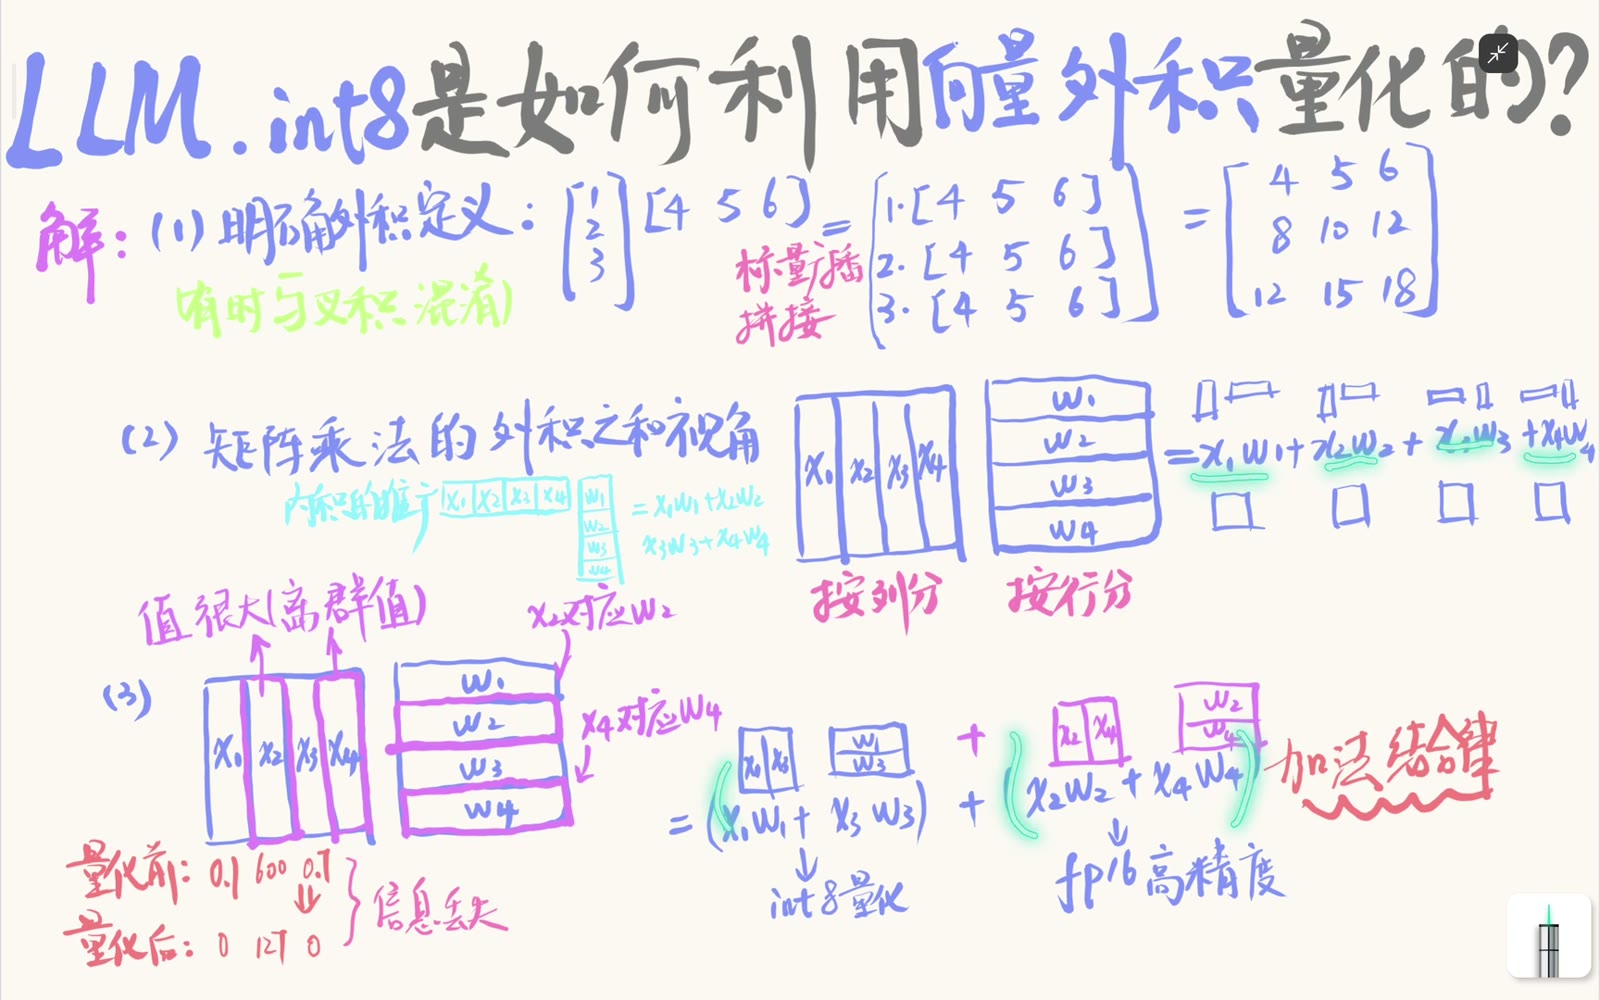 LLM.int8是如何利用向量外积量化的?
解:(1)明确外积定义:
有时与叉积混淆)
[1 2 3] [4 5 6] = [1·[4 5 6] 2·[4 5 6] 3·[4 5 6]] = [4 5 6 8 10 12 12 15 18]
标量广播
拼接
(2)矩阵乘法的外积之和视角
x1 x2 x3 x4
w1
w2
w3
w4
=x1w1+x2w2+x3w3+x4w4
内积的推广
x1 x2 x3 x4
w1
w2
w3
w4
=x1w1+x2w2
x3w3+x4w4
按列分
按行分
值很大(离群值)
x2对应w2
(3)
x1 x2 x3 x4
w1
w2
w3
w4
x4对应w4
x1 x3
w1
w3
+
x2 x4
w2
w4
=(x1w1+x3w3)+(x2w2+x4w4)
加法结合律
int8量化
fp16高精度
量化前:0.1 600 0.7
量化后:0 127 0
信息丢失